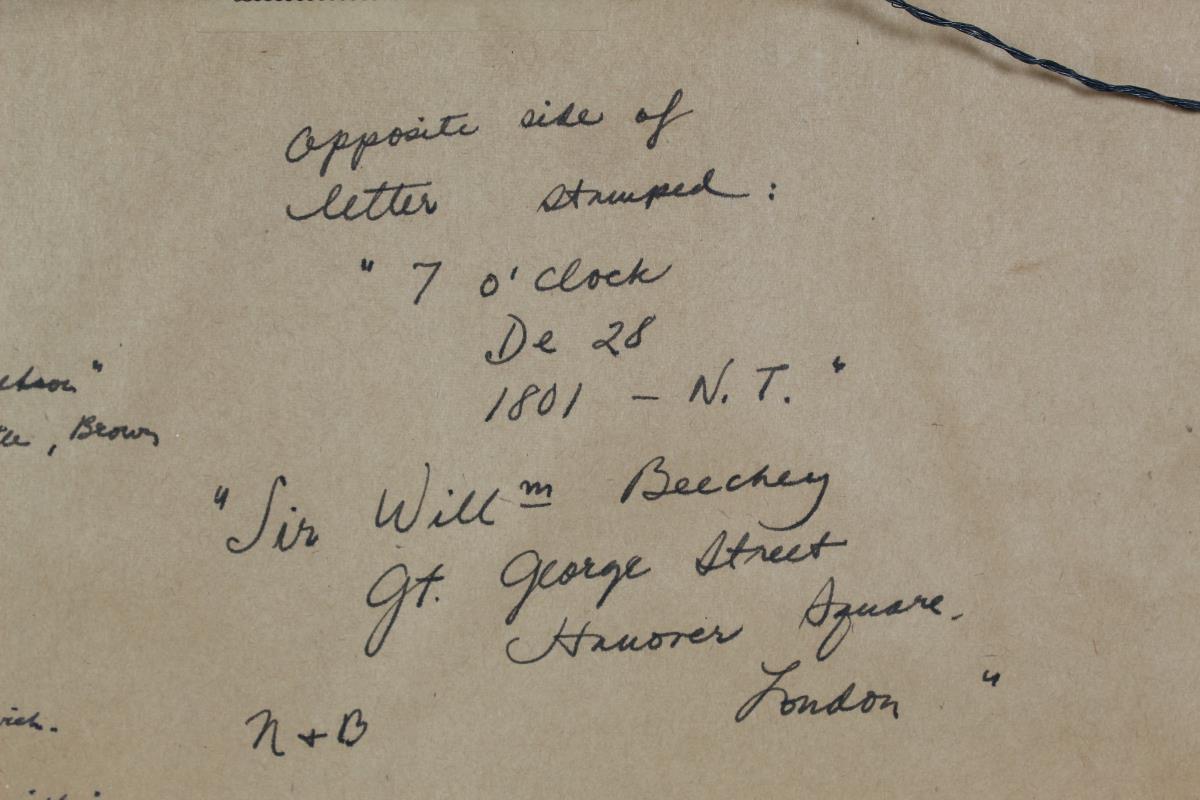 Opposite side of
letter stamped :
" 7 o'clock
De 28
1801 – N. T. "
" Sir Will m Beechey
Gt. George Street
Hanover Square.
London "
N + B
, Brown